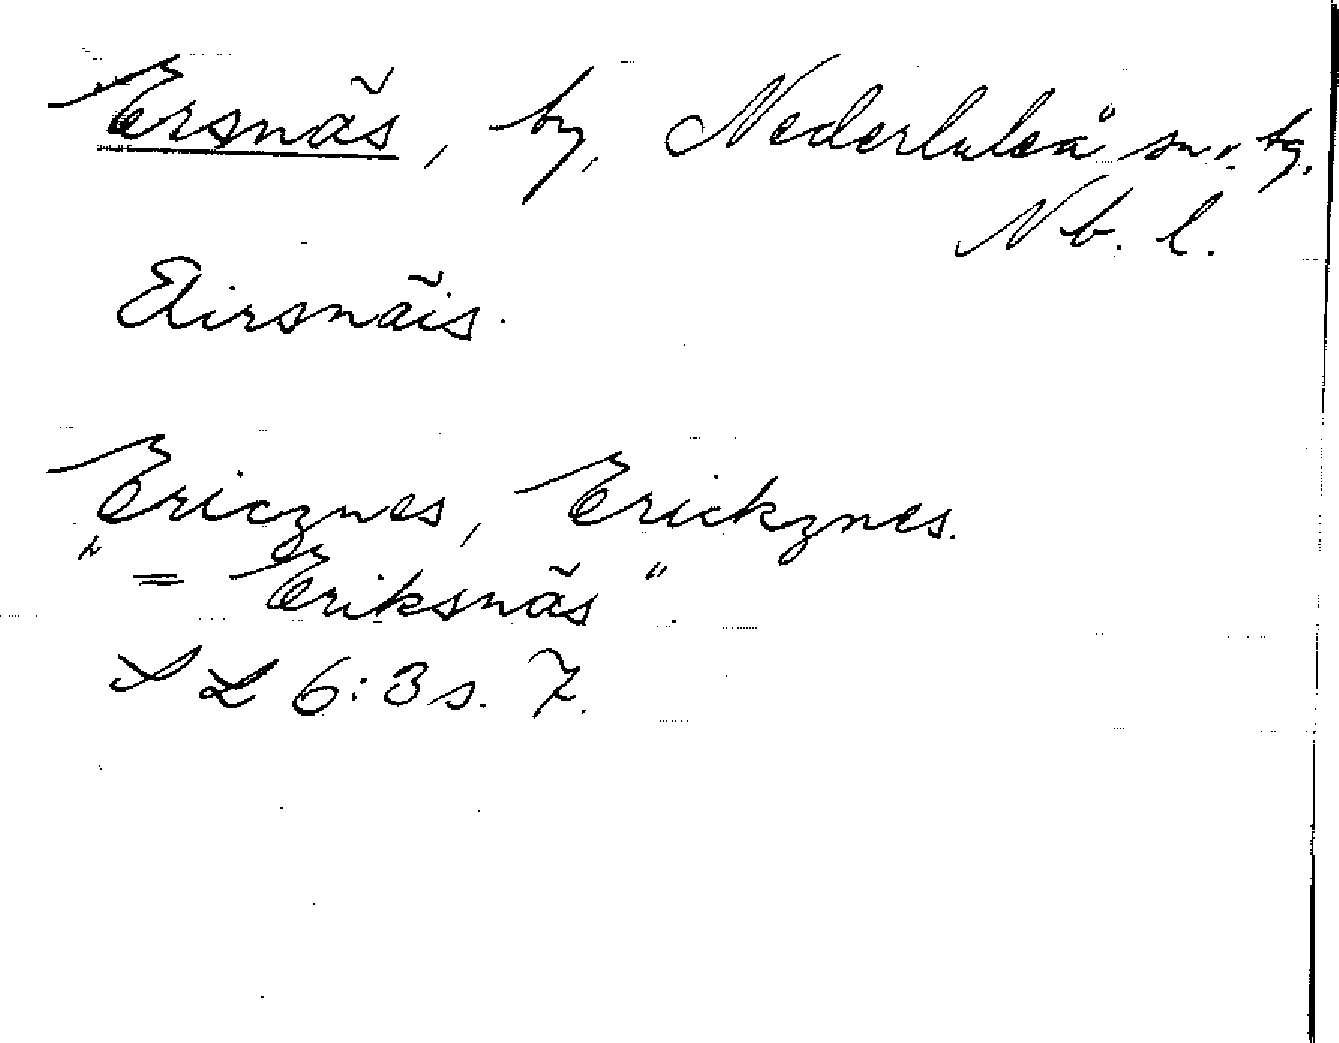 Ersnäs, by, Nederluleå sn o. tg.
Nb. l.
Eirsnäis.
Ericznes, Erickznes.
" = Eriksnäs".
SL 6:3 s. 7.